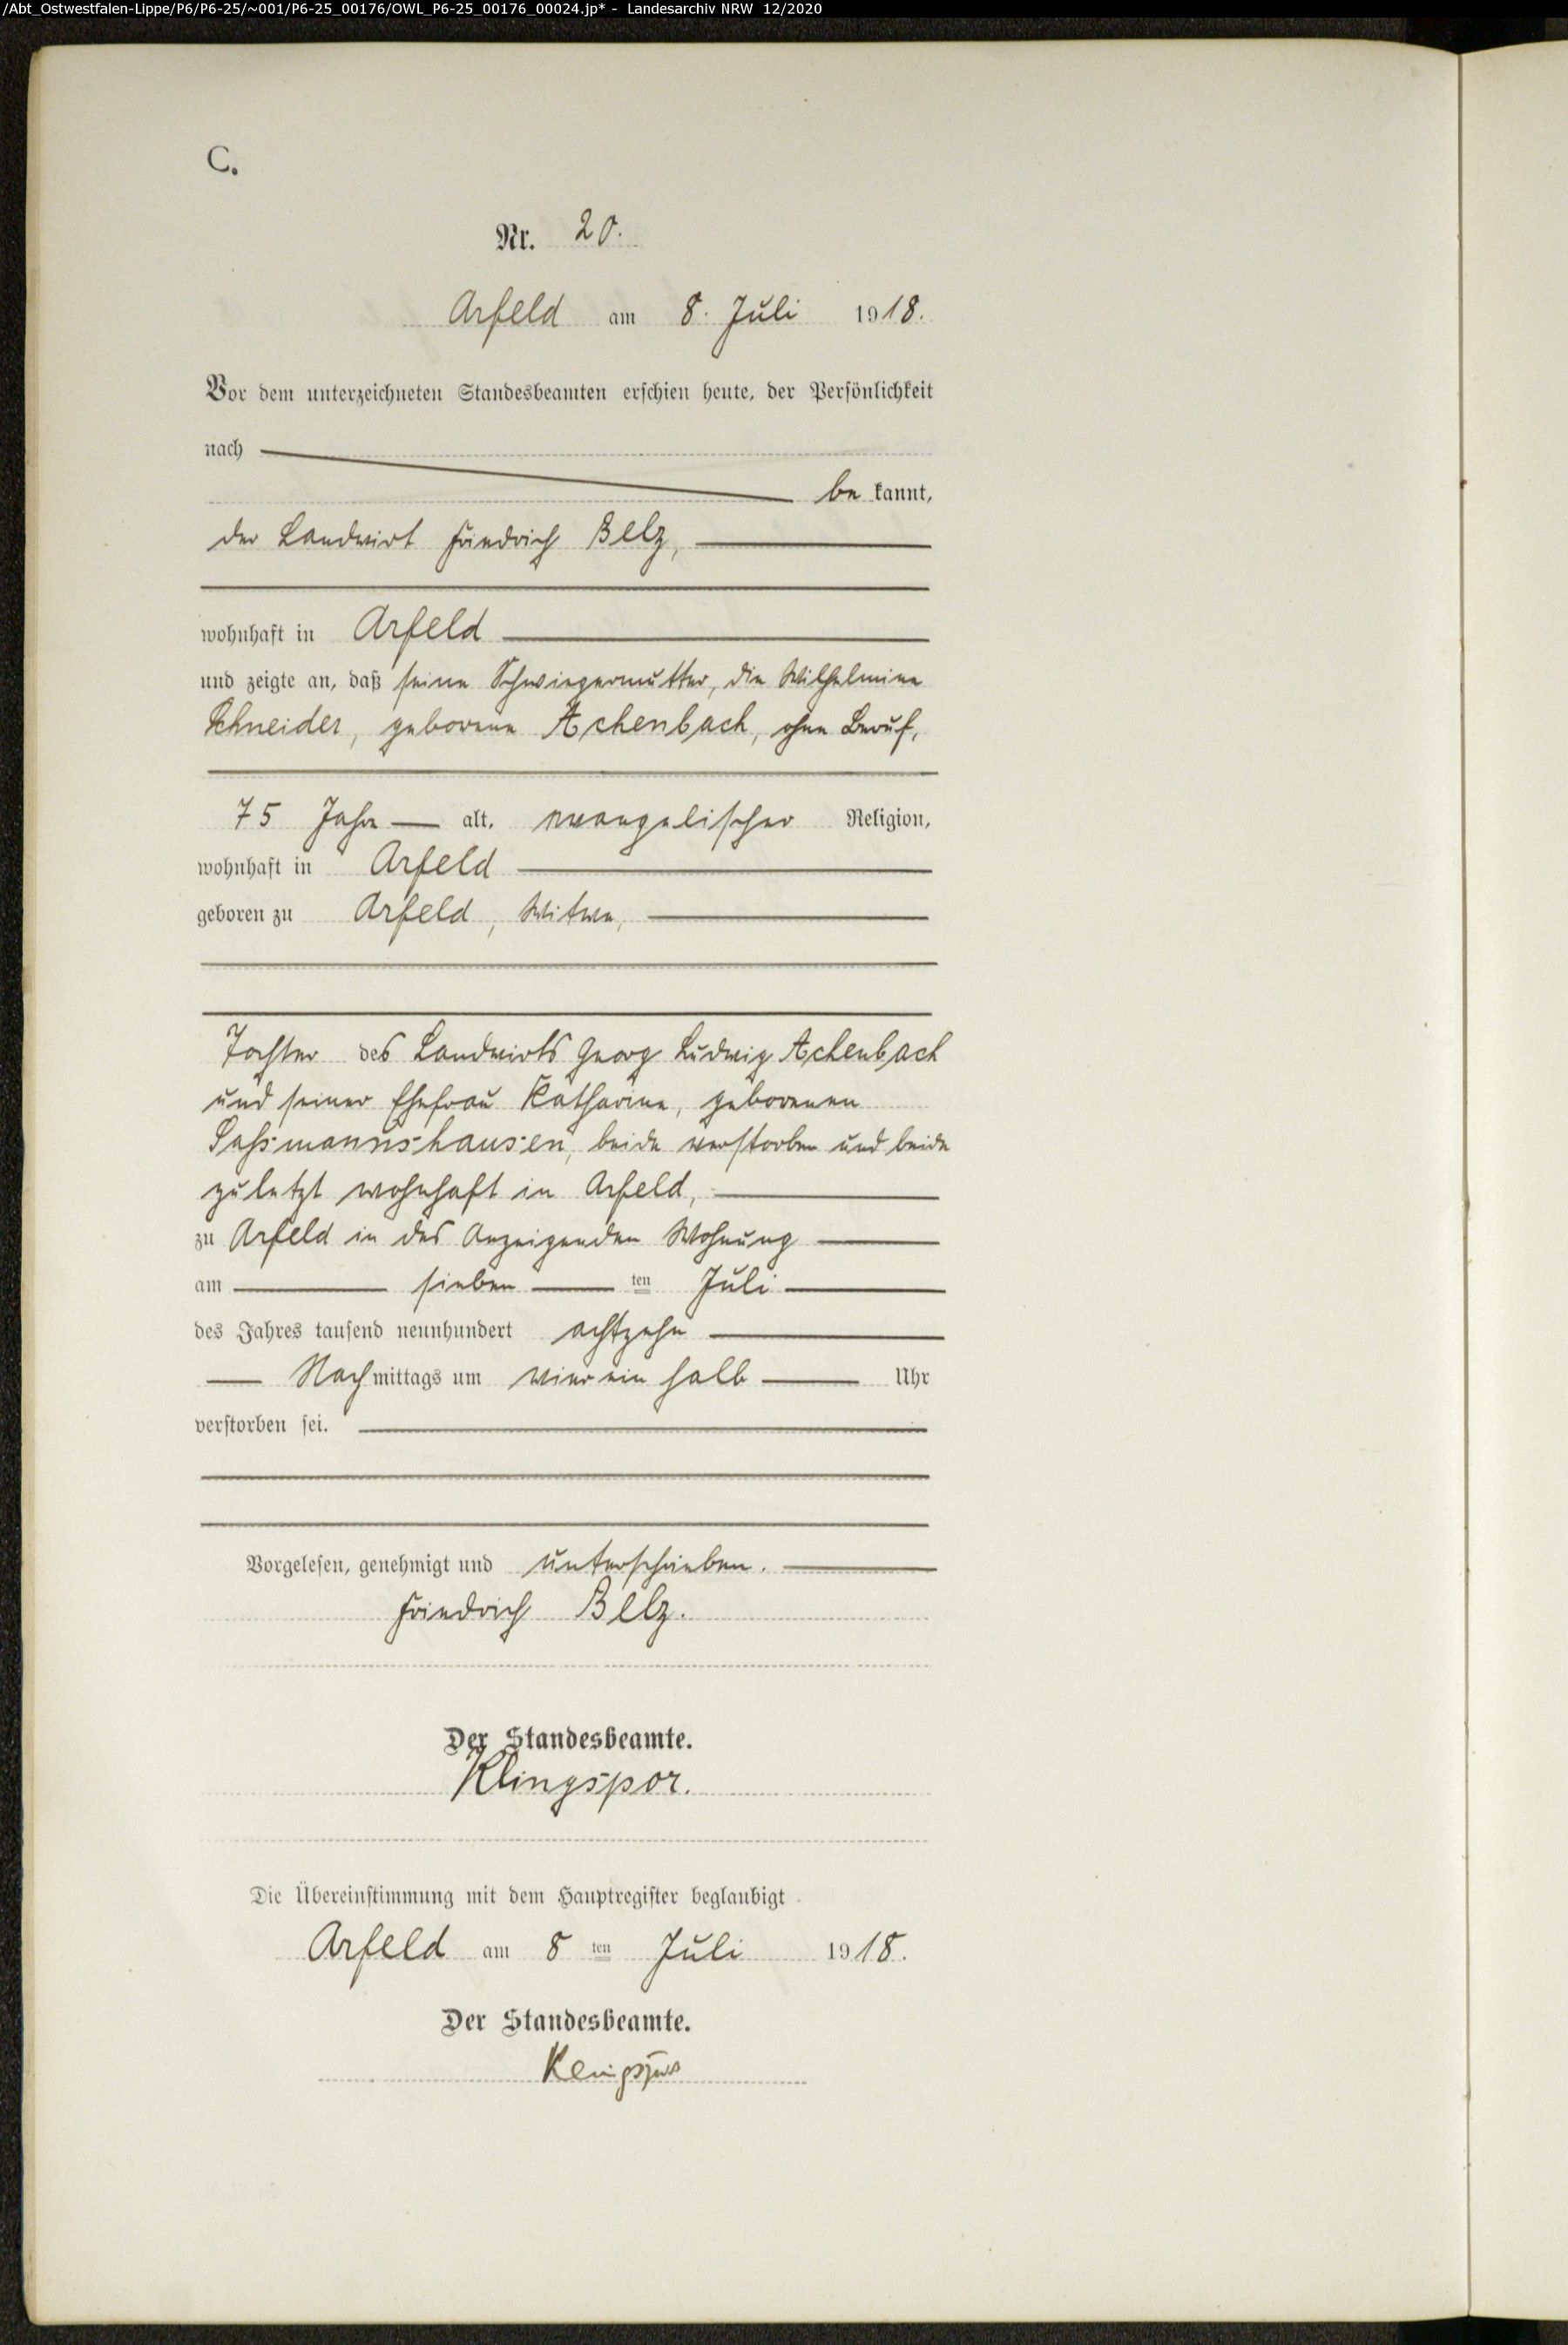 /Abt_Ostwestfalen-Lippe/P6/P6-25/~001/P6-25_00176/OWL_P6-25_00176_00024.jp* - Landesarchiv NRW 12/2020
C.
Nr. 20.
Arfeld am 8. Juli 1918.
Vor dem unterzeichneten Standesbeamten erschien heute, der Persönlichkeit
nach
be kannt,
der Landwirt Friedrich Belz,
wohnhaft in Arfeld
und zeigte an, daß seine Schwiegermutter, die Wilhelmine
Schneider, geborene Achenbach, ohne Beruf,
75 Jahre alt, evangelischer Religion,
wohnhaft in Arfeld
geboren zu Arfeld, Witwe,
Tochter des Landwirts Georg Ludwig Achenbach
und seiner Ehefrau Katharine, geborenen
Sassmannshausen, beide verstorben und beide
zuletzt wohnhaft in Arfeld,
zu Arfeld in des Anzeigenden Wohnung
am sieben ten Juli
des Jahres tausend neunhundert achtzehn
Nachmittags um vier ein halb Uhr
verstorben sei.
Vorgelesen, genehmigt und unterschrieben.
Friedrich Belz.
Der Standesbeamte.
Klingspor.
Die Übereinstimmung mit dem Hauptregister beglaubigt
Arfeld am 8 ten Juli 1918.
Der Standesbeamte.
Klingspor